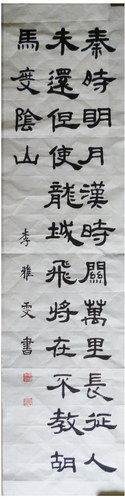 秦時明月漢時關萬里長征人
未還但使龍城飛將在不教胡
馬度陰山
李雅雯書